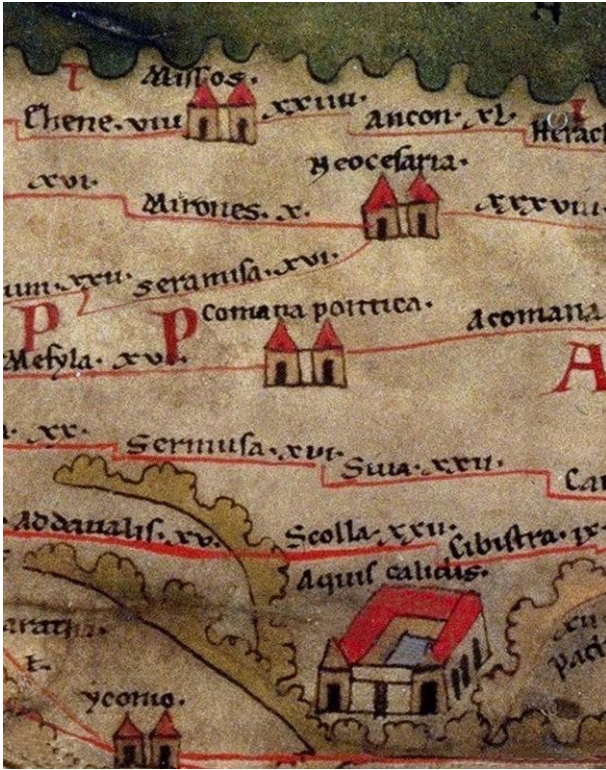 T
Missos.
Chene. viii
xxiiii.
Ancon. xl.
Herac
xvi.
Neocesaria.
Mirones. x.
xxxviii
um. xxii.
seramisa. xvi.
P
P
Comana pontica.
Acomana
Mesyla. xvi.
A
xx.
Sermusa. xvi.
Siua. xxii.
Addaualis. xv.
Scolla. xxii.
Cibistra. ix
Aquis calidis.
xii
ycomo.